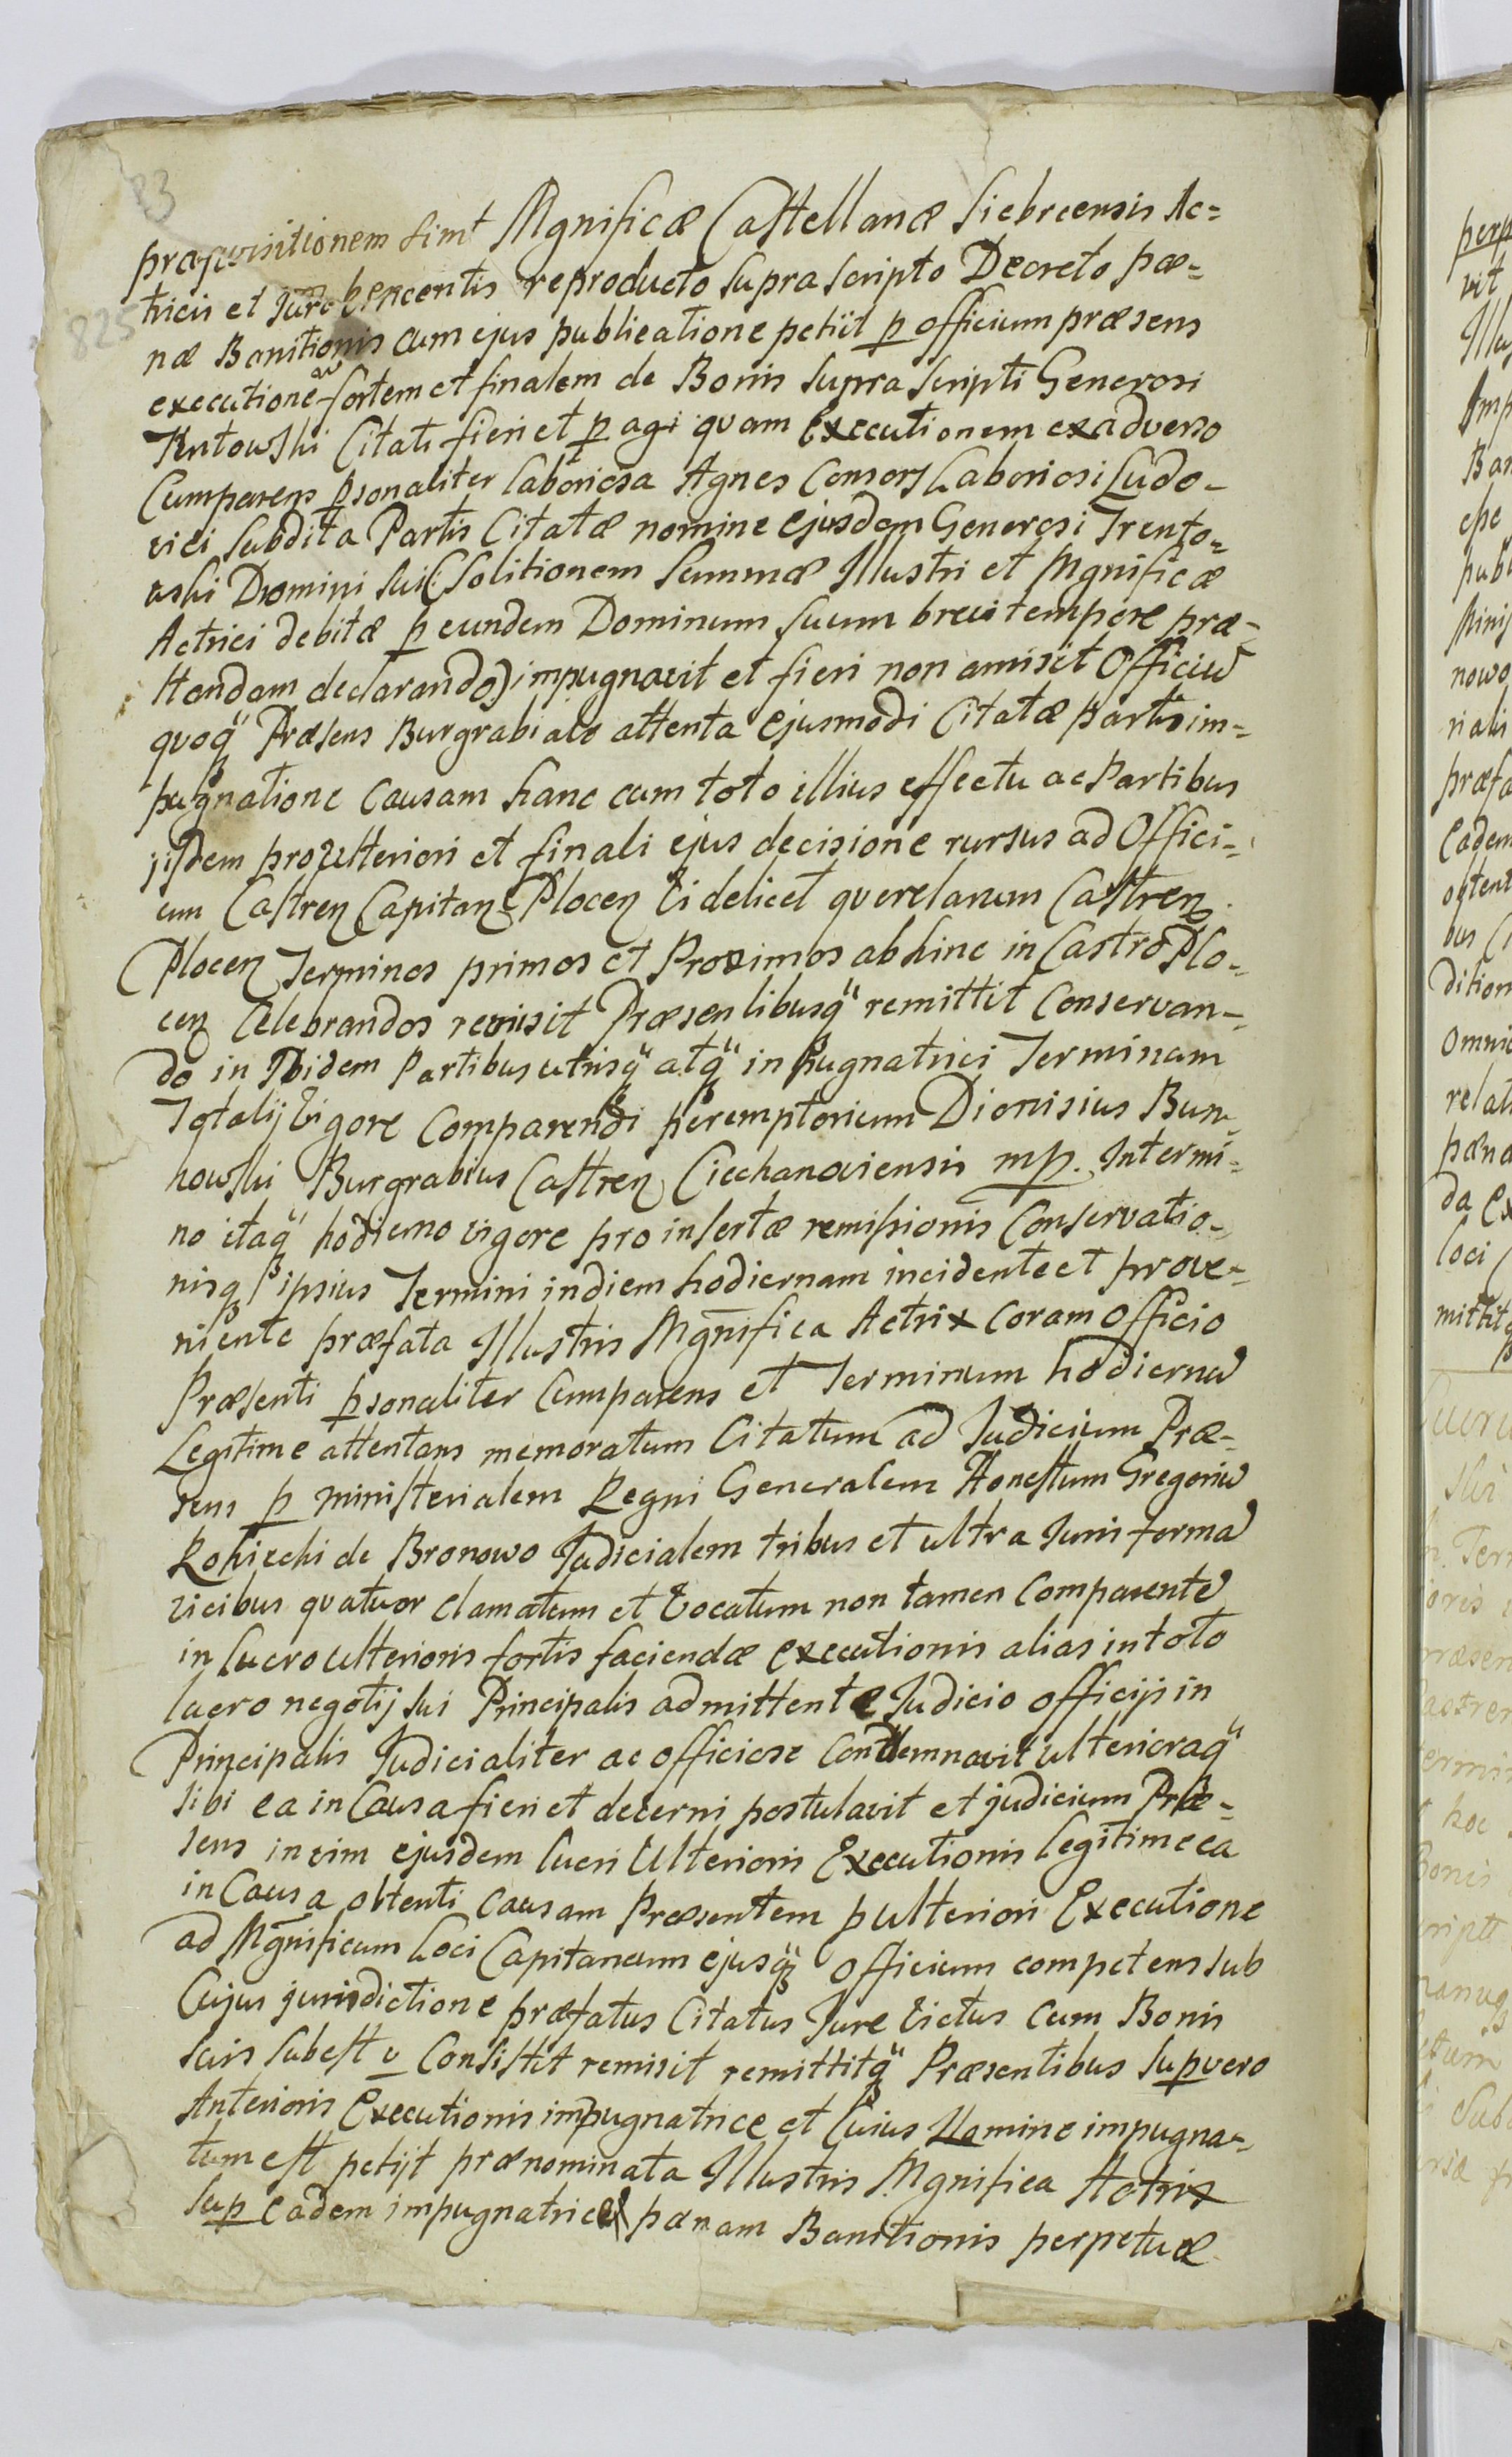 83
825
præquisitionem sim̄t Mgnificæ Castellanæ Siebreensis Ac=
tricis et Jūre bencentis reproducto suprascripto Decreto pœ=
næ Banitionis cum ejus publicatione petiit p officium præsens
executionē fortem et finalem de Bonis supra scripti Generosi
Trntowski Citati fieri et p agi quam Executionem exadverso
Cumparens psonaliter laboriosa Agnes Consors Laboriosi Ludo-
vici subdita Partis Citatæ nomine ejusdem Generosi Trento=
wski Domini sui (solitionem summæ Illustri et Mgnificæ
Actrici debitæ p eundem Dominum suum brevi tempore præ-
standam declarando) impugnavit et fieri non amisit Officiu
quoq̃ Præsens Burgrabiale attenta ejusmodi Citatæ partis im=
pugnatione Causam hanc cum toto illius effectu ac Partibus
ijsdem pro ulteriori et finali ejus decisione rursus ad Offici=
um Castren Capitane Plocen Videlicet querelarum Castren
Plocen Terminos primos et Proximos abhinc in Castro Plo-
cen Celebrandos remisit Præsentibusq̃ remittit Conservan-
do in Ibidem Partibus utrisq̃ atq̃ inpugnatrici Terminum
Totalij Vigore Comparendi peremptorium Dionisius Bun-
howski Burgrabius Castren Ciechanoviensis mp. Intermi-
no itaq̃ hodierno vigore pro insertæ remissionis Conservatio-
nisq̃ ipsius Termini indiem hodiernam incidente et prove-
niente præfata Illustris Mgnifica Actrix Coram Officio
Præsenti psonaliter Cumparens et Terminum hodiernu
Legitime attentans memoratum Citatum ad Judicium Præ-
sens p ministerialem Regni Generalem Honestum Gregoriu
Rokicki de Bronowo Judicialem tribus et ultra Juris forma
vicibus quatuor clamatum et Vocatum non tamen Comparente
in lucro ulterioris fortis faciendæ executionis alias intoto
lucro negotij sui Principalis admittente Judicio officij in
Principalis Judicialiter ac officiose Condemnavit ulterioraq̃
sibi ea in Causa fieri et decerni postulavit et judicium Præ-
sens in vim ejusdem lucri Ulterioris Executionis legitime ea
in Causa obtenti Causam Præsentem p ulteriori Executione
ad Mgnificum Loci Capitaneum ejusq̃ Officium competens sub
Cujus jurisdictione præfatus Citatus Jure Victus cum Bonis
suis subest v Consistit remisit remittitq̃ Præsentibus Sup vero
Anterioris Executionis impugnatrice et Cuius Nomine impugna-
tum est petijt prænominata Illustris Mgnifica Actrix
Sup eadem impugnatrice pœnam Banitionis perpetuæ